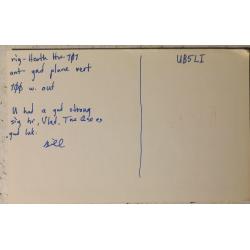 rig - Heath HW 101
ant - gnd plane vert
100 w. out
U had a gud strong
sig hr, Vlad. Tnx Qso es
gud luk.
Bill
UB5LI